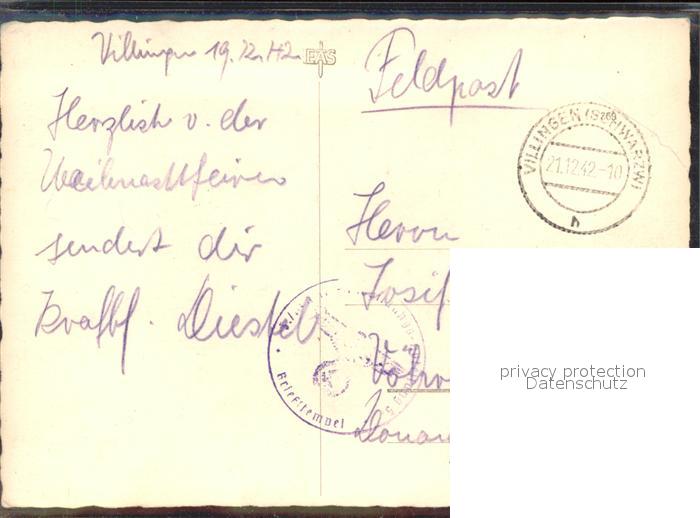 Villingen 19.12.42
EAS
Feldpost
VILLINGEN (SCHWARZW)
21.12.42-10
h
Herzlich v. der
Weihnachtsfeier
sendet dir
Diesel
Herrn
Josif
Vöhr
Donau
Briefstempel
privacy protection
Datenschutz